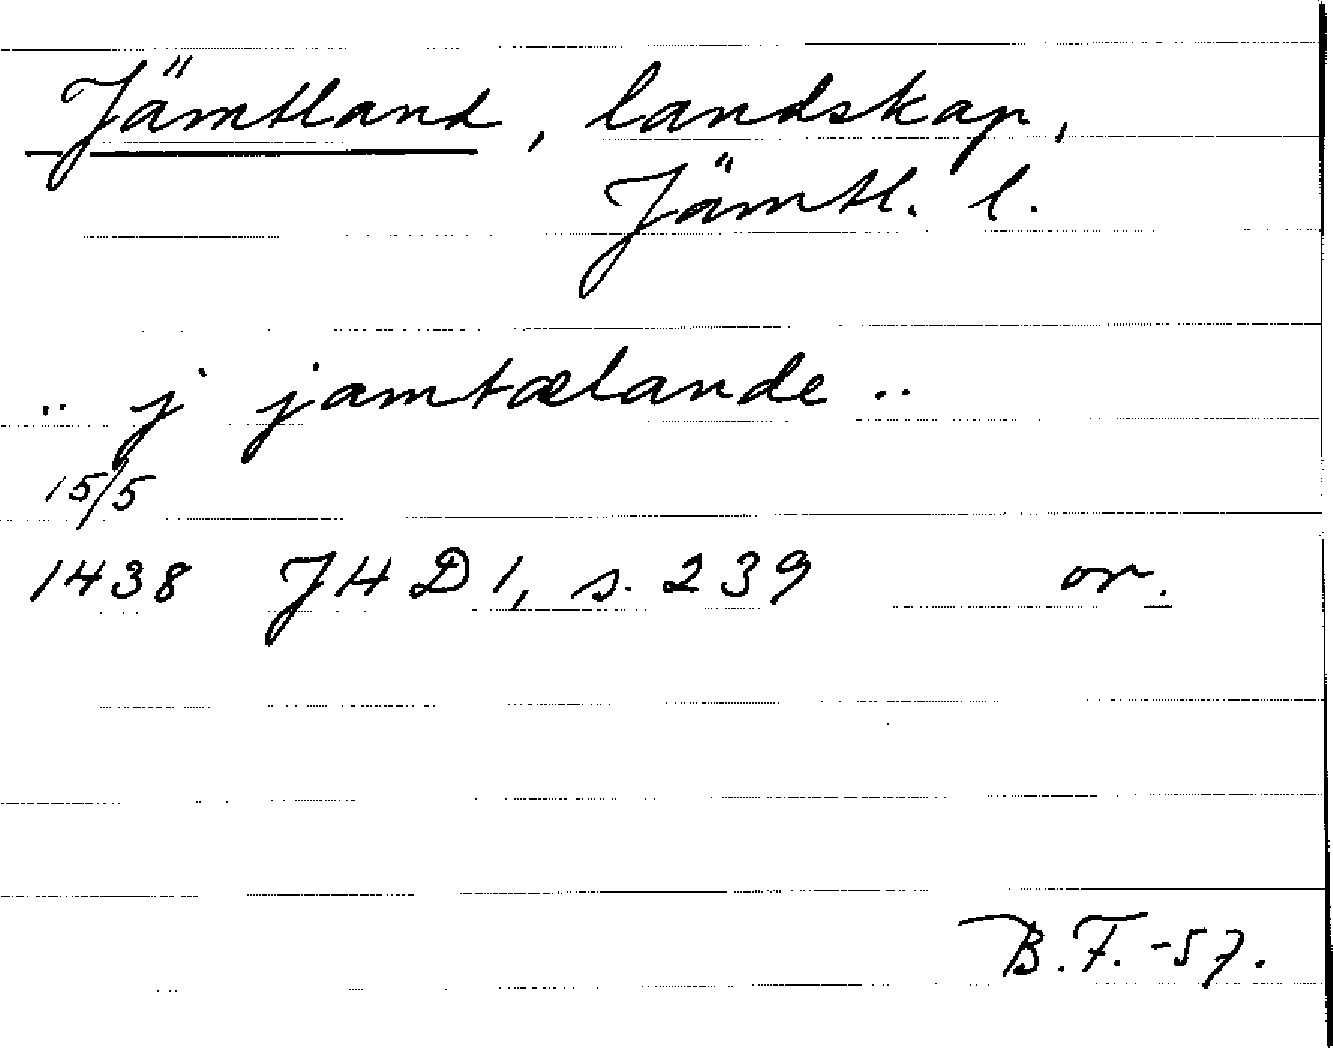 Jämtland, landskap,
Jämtl. l.
.. j jamtælande ..
15/5
1438 JHD 1, s. 239 or.
B.F. -57.